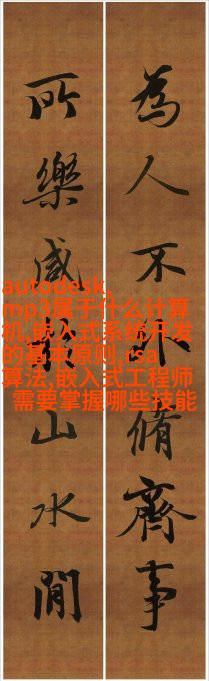 為人不脩齊事
所樂咸山水間
autodesk,
mp3属于什么计算
机,嵌入式系统开发
的基本原则,rsa
算法,嵌入式工程师
需要掌握哪些技能